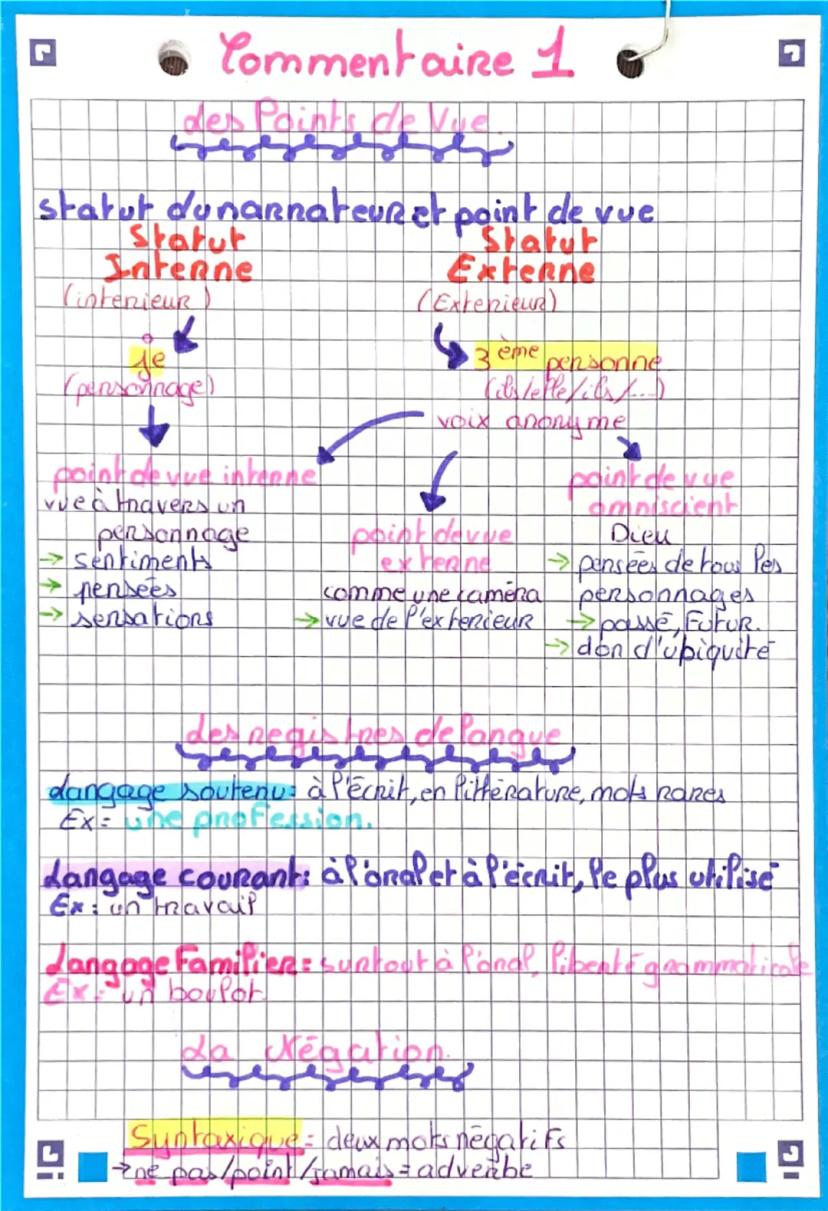 Commentaire 1
Les Points de Vue
statut du narrateur et point de vue
Statut Interne
(intérieur)
Statut Externe
(Extérieur)
je
(personnage)
3ème personne
(ils/elle/ils/...)
voix anonyme
point de vue interne
vue à travers un
personnage
→ sentiments
→ pensées
→ sensations
point de vue
externe
comme une caméra
→ vue de l'exterieur
point de vue
omniscient
Dieu
→ pensées de tous les
personnages
→ passé, Futur.
→ don d'ubiquité
Les registres de langue
Langage soutenu: à l'écrit, en littérature, mots rares
Ex: une profession.
Langage courant: à l'oral et à l'écrit, le plus utilisé
Ex: un travail
Langage Familier: surtout à l'oral, liberté grammaticale
Ex: un boulot.
La Négation.
Syntaxique = deux mots négatifs
→ ne pas/point/jamais = adverbe